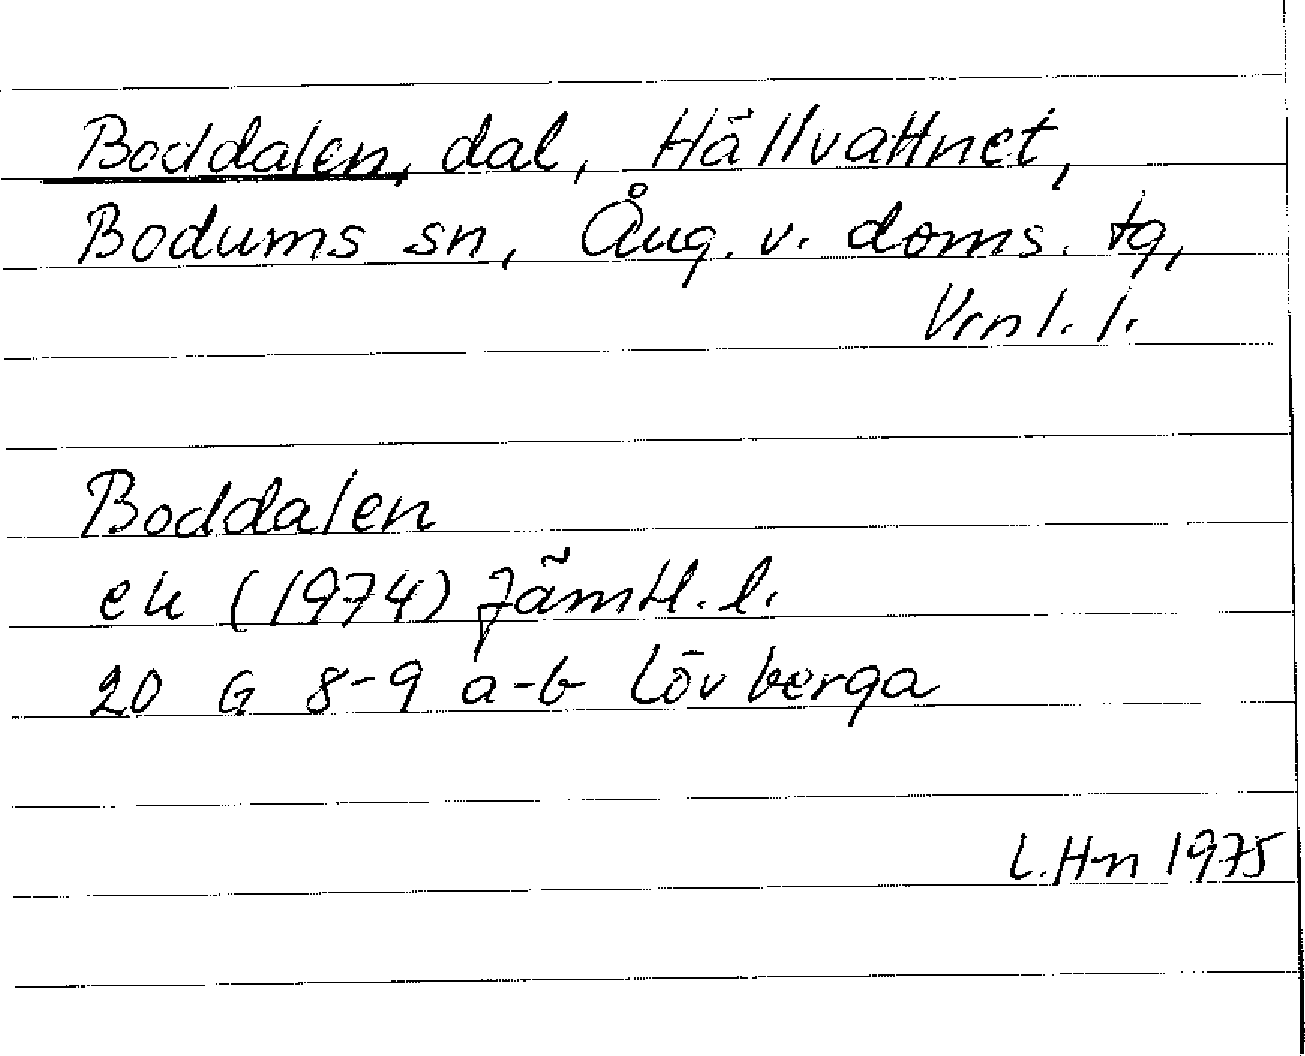 Boddalen, dal, Hällvattnet,
Bodums sn, Ång. v. doms. tg,
Vrnl. l.
Boddalen
ek (1974) Jämtl. l.
20 G 8-9 a-b Lövberga
L.H-n 1975